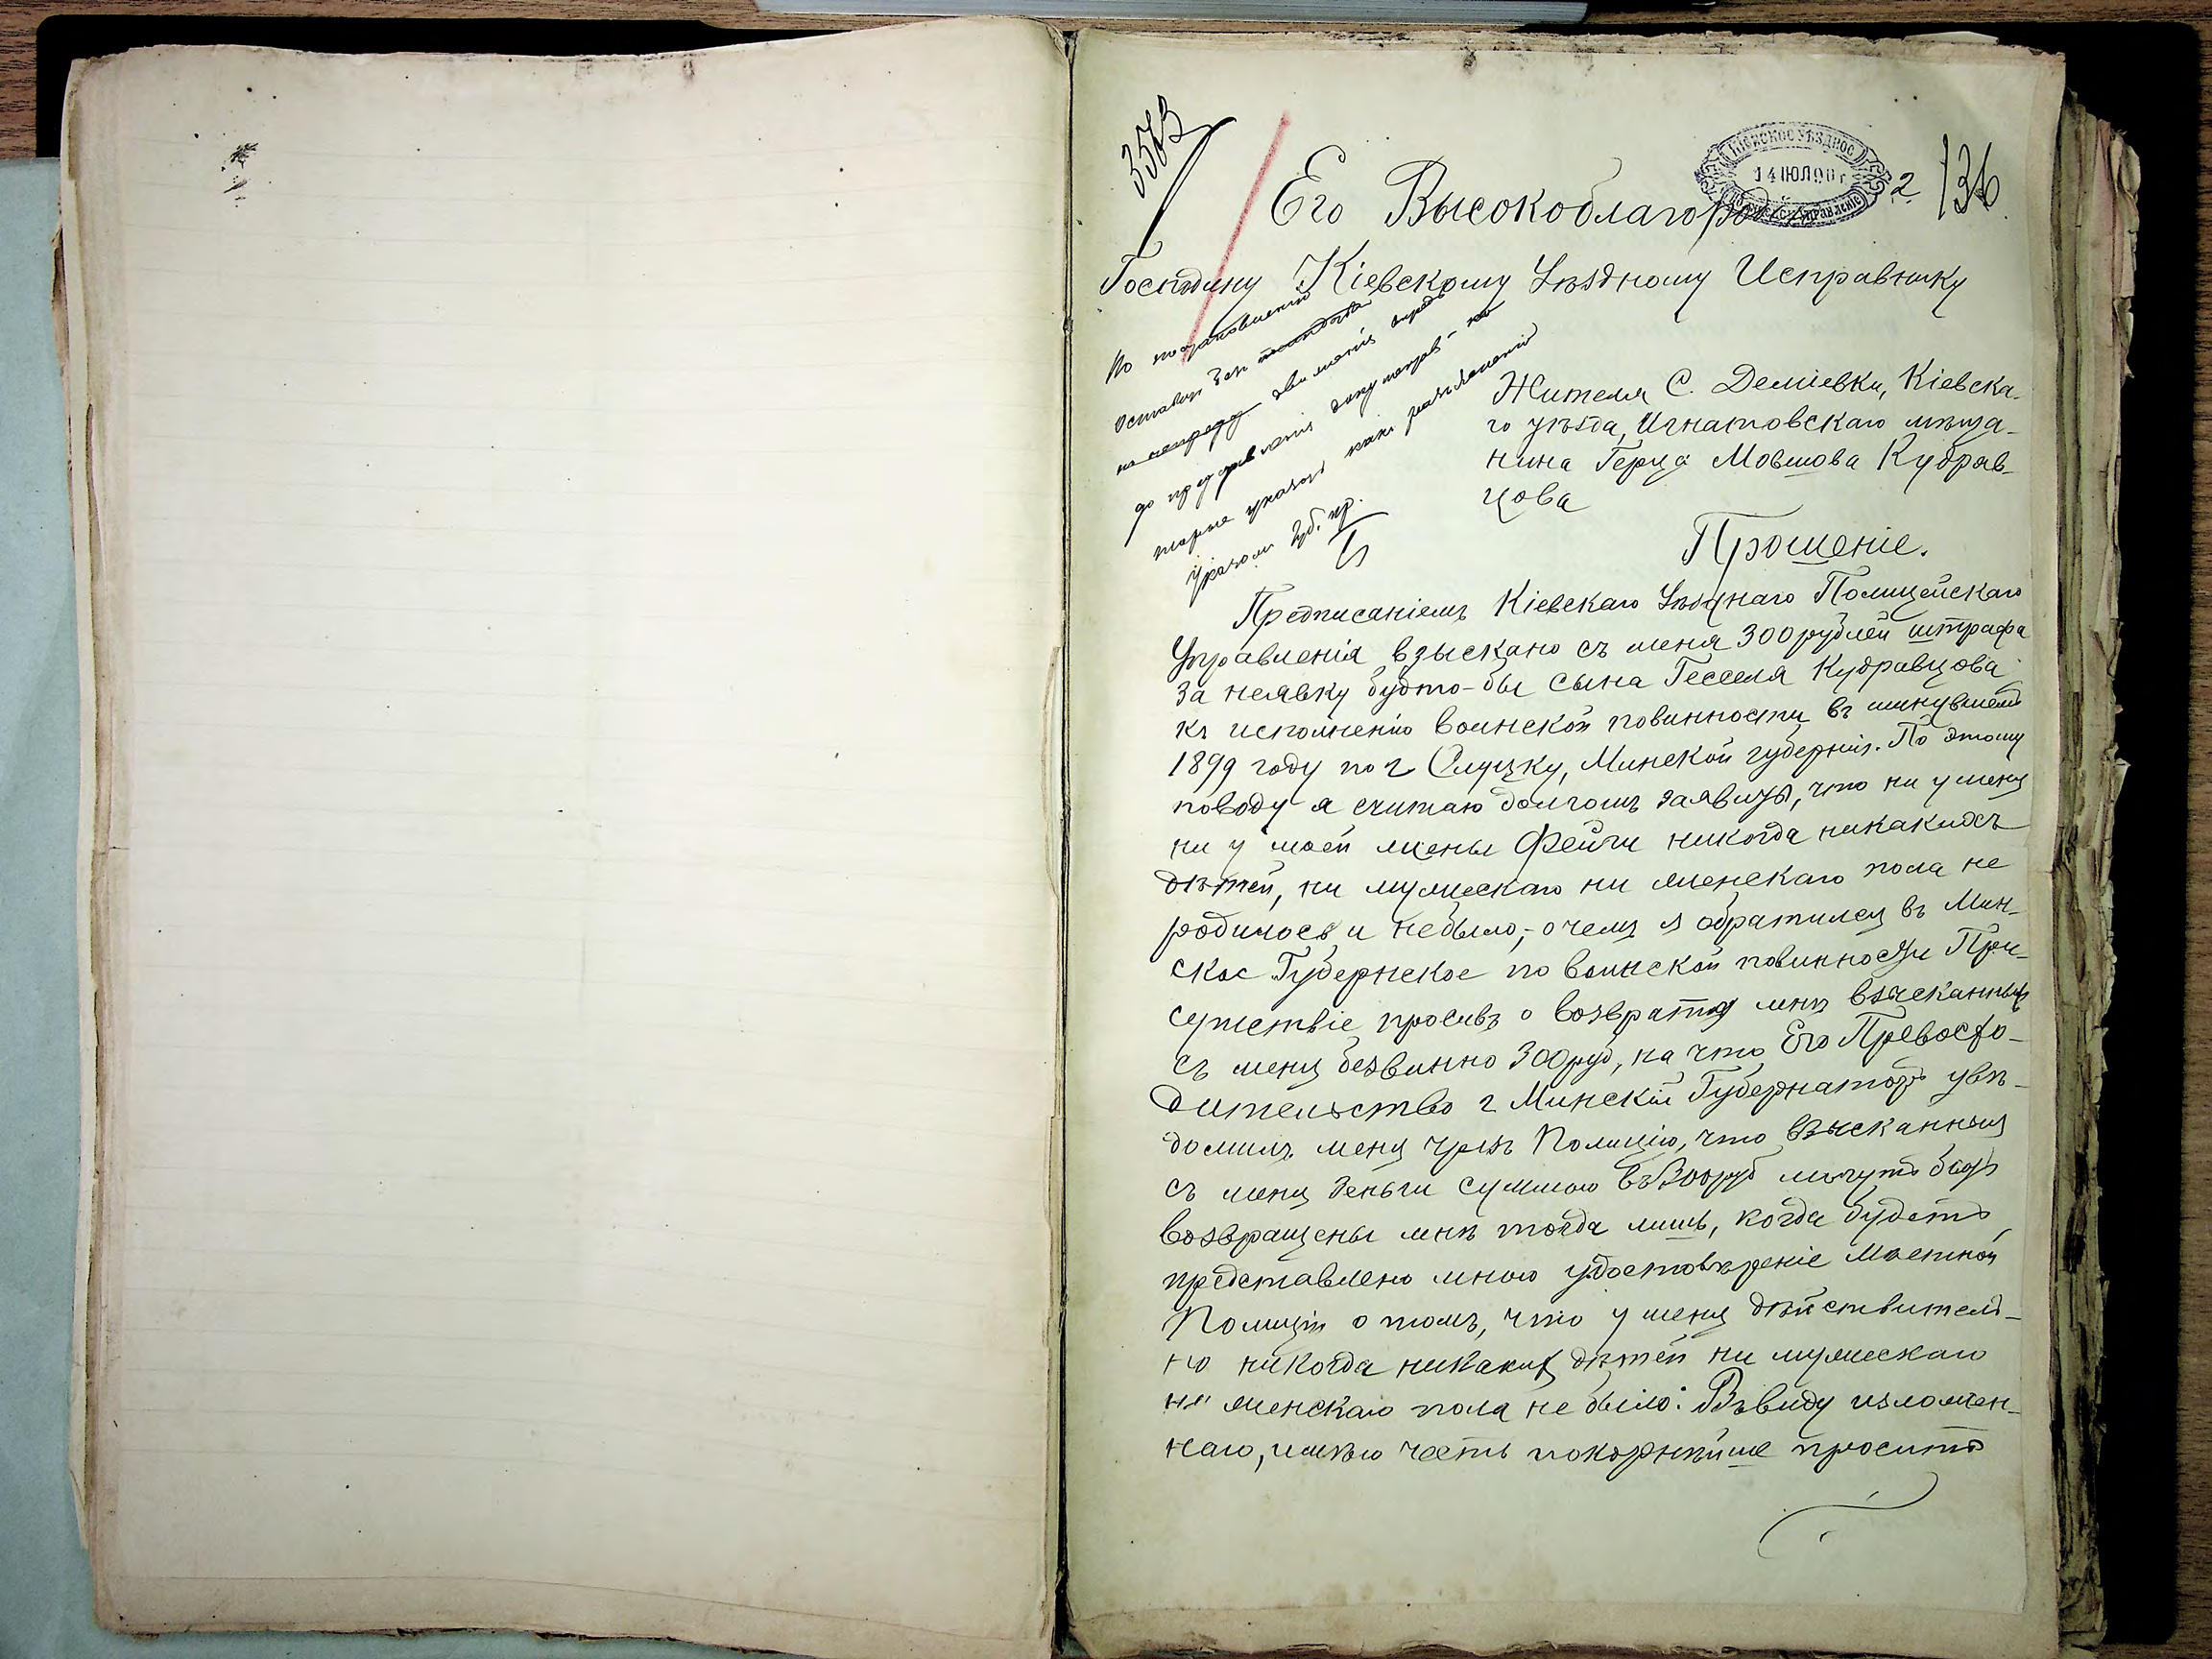 3573
КІЕВСКОЕ УѢЗДНОЕ
14 ІЮЛ 90 г
ПОЛИЦЕЙСК. УПРАВЛЕНІЕ
2 136
Его Высокоблагородію
Господину Кіевскому Уѣздному Исправнику
По постановленію
оставить без
движенія впредь
до представленія документов - ко
торые указаны
указом Губ. пр.
Жителя С. Деміевки, Кіевска-
го уѣзда, Игнатовскаго мѣща-
нина Герца Мовшова Кудрав-
цова
Прошеніе.
Предписаніемъ Кіевскаго Уѣзднаго Полицейскаго
Управленія взыскано съ меня 300 рублей штрафа
за неявку будто-бы сына Гесселя Кудравцова
къ исполненію воинской повинности въ минувшемъ
1899 году по г Слуцку, Минской губерніи. По этому
поводу я считаю долгомъ заявить, что ни у меня
ни у моей жены Фейги никогда никакихъ
дѣтей, ни мужескаго ни женскаго пола не
родилось и не было, - о чемъ я обратился въ Мин-
ское Губернское по воинской повинности При-
сутствіе просивъ о возвратѣ мнѣ взысканныхъ
съ меня безвинно 300 руб, на что Его Превосхо-
дительство г Минскій Губернаторъ увѣ-
домилъ меня чрезъ Полицію, что взысканныя
съ меня деньги суммою въ 300 руб могутъ быть
возвращены мнѣ тогда лишь, когда будетъ
представлено мною удостовѣреніе мѣстной
Полиціи о томъ, что у меня дѣйствитель-
но никогда никакихъ дѣтей ни мужескаго
ни женскаго пола не было. Въ виду изложен-
наго, имѣю честь покорнѣйше просить